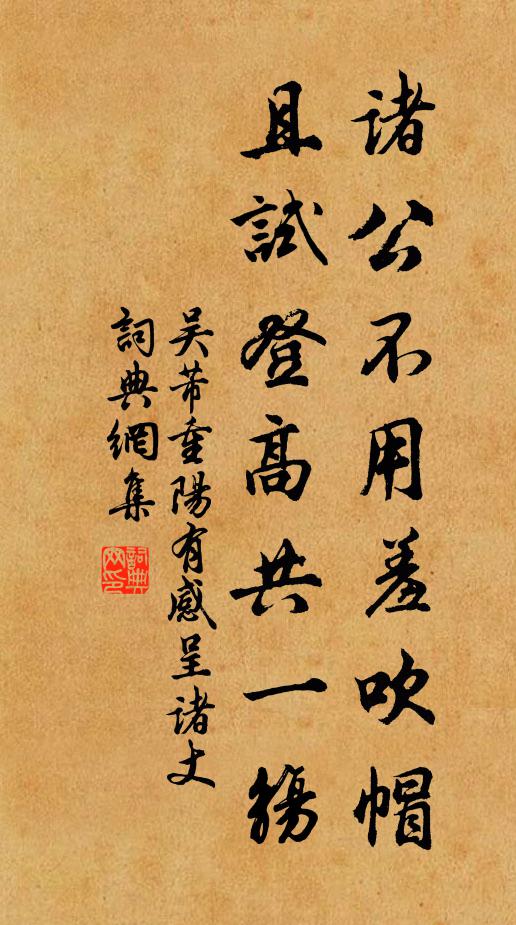 诸公不用羞吹帽
且試登高共一觴
吴芾重陽有感呈诸丈
詞典網集
詞典网印